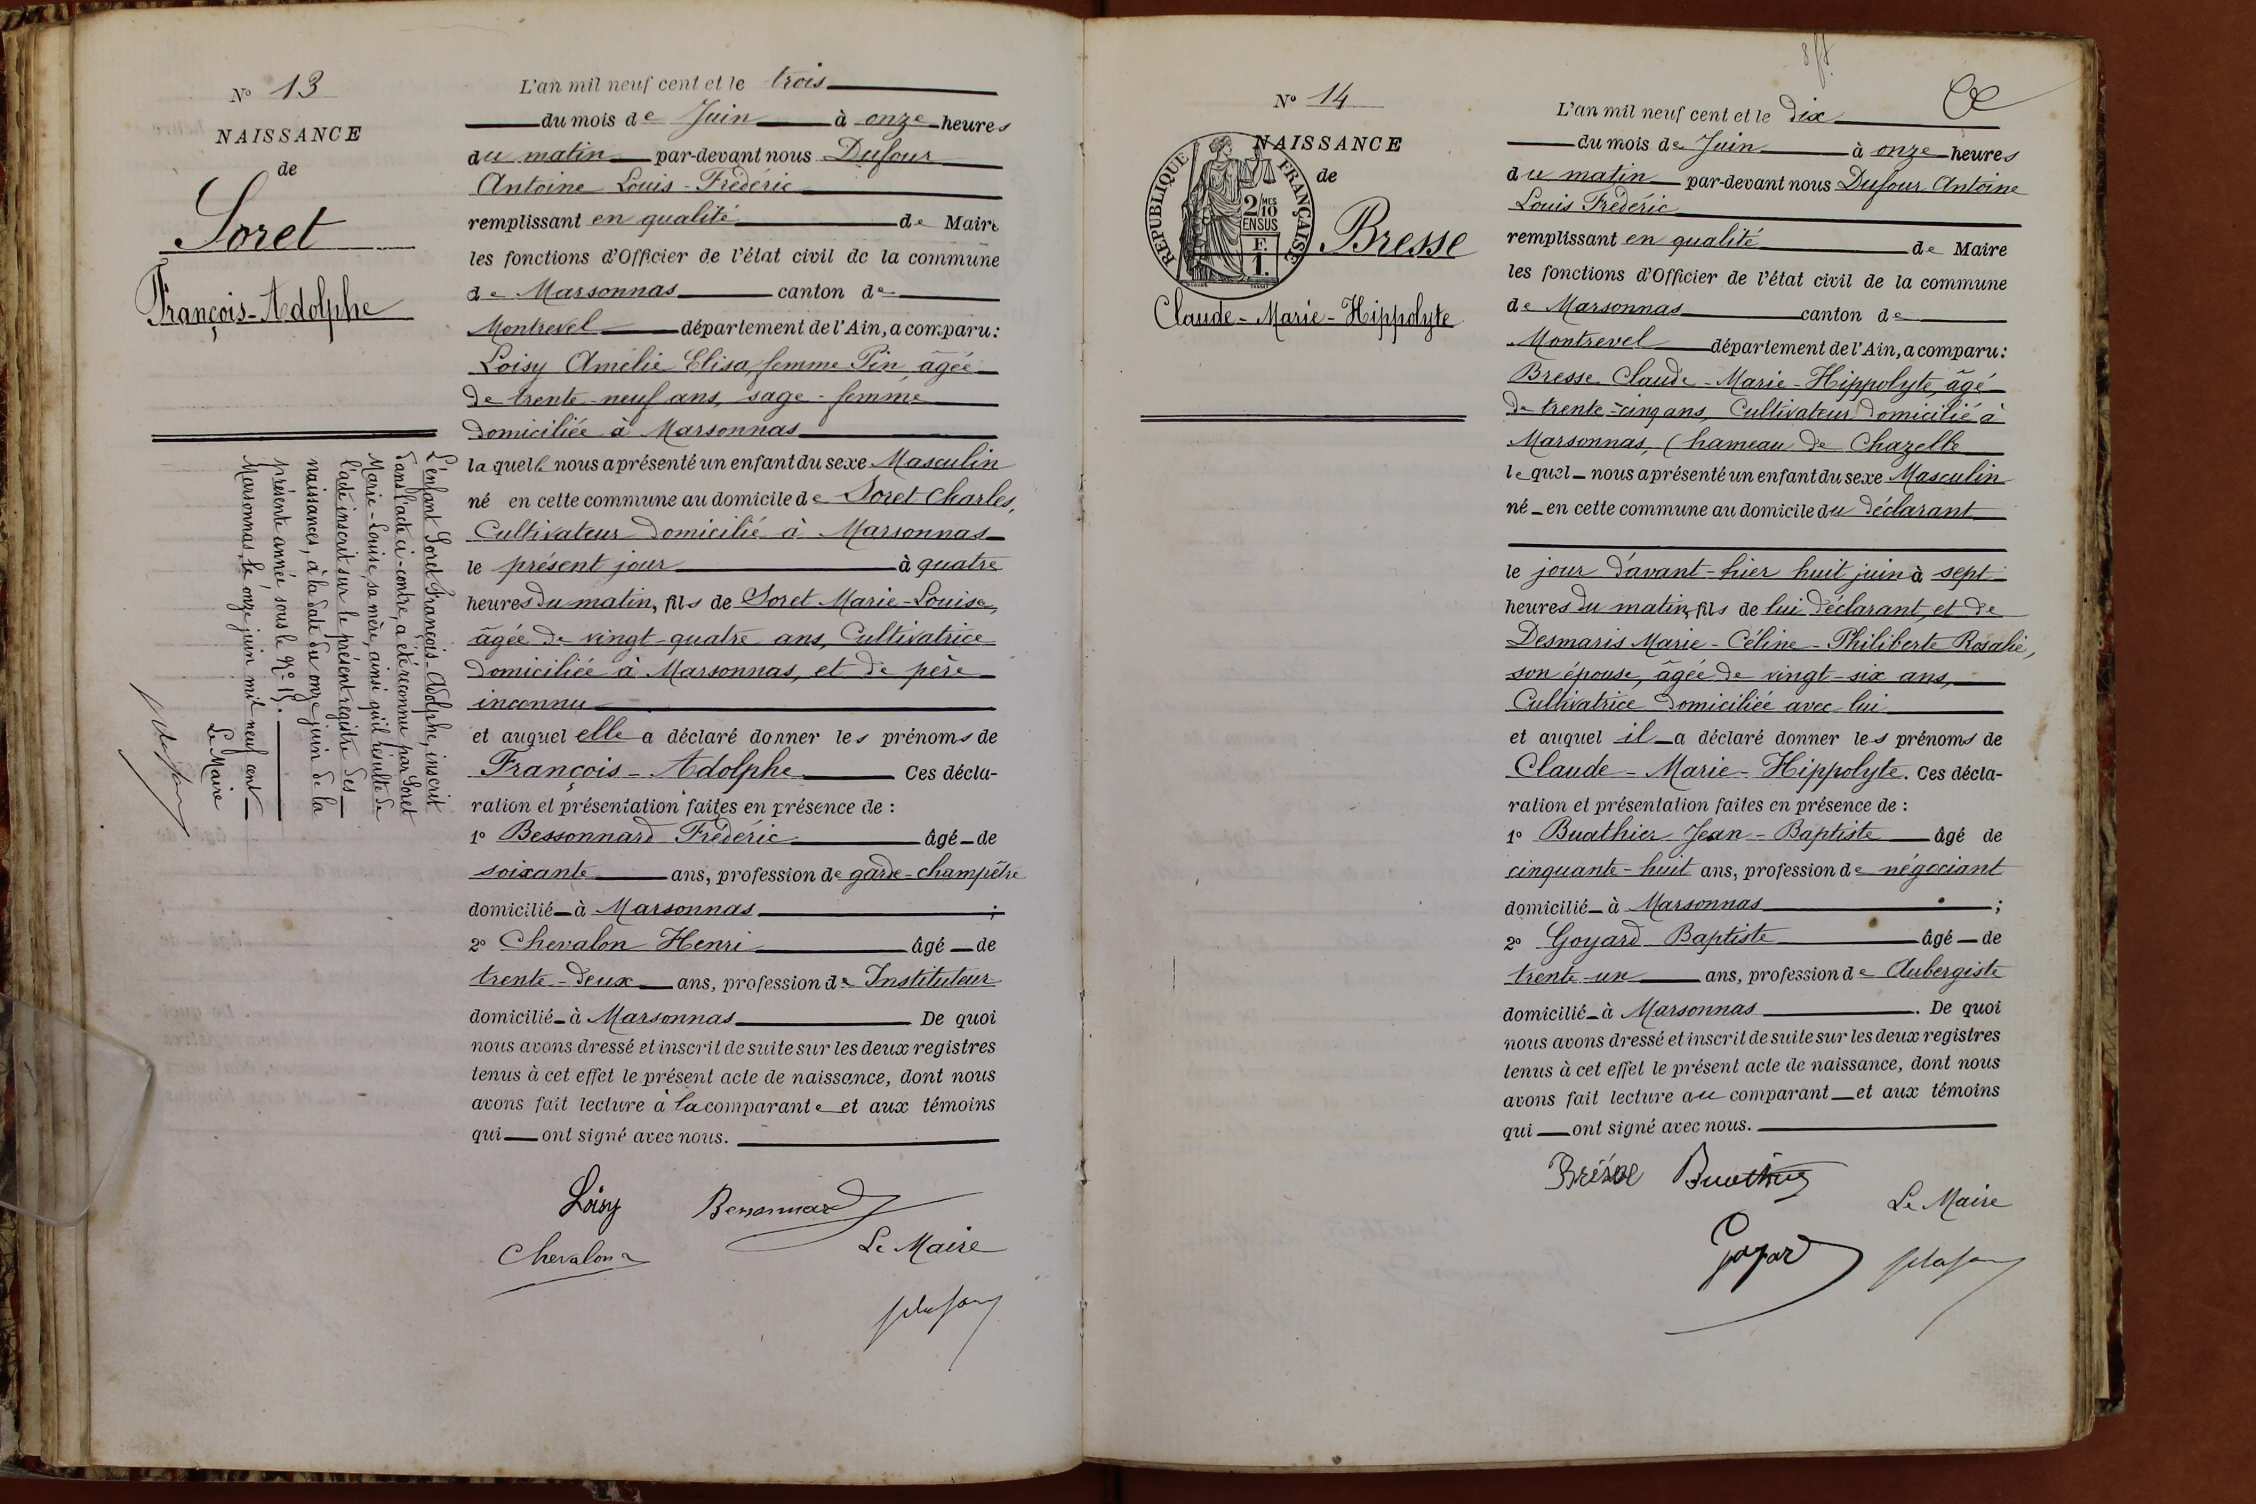 N° 13
NAISSANCE
de
Soret
François-Adolphe
L'an mil neuf cent et le trois
du mois de Juin à onze heures
du matin par-devant nous Dufour
Antoine Louis-Frédéric
remplissant en qualité de Maire
les fonctions d'Officier de l'état civil de la commune
de Marsonnas canton de
Montrevel département de l'Ain, a comparu:
Loisy Amélie Elisa, femme Pin, âgée
de trente-neuf ans, sage-femme
domiciliée à Marsonnas
laquelle nous a présenté un enfant du sexe Masculin
né en cette commune au domicile de Soret Charles,
Cultivateur domicilié à Marsonnas
le présent jour à quatre
heures du matin, fils de Soret Marie-Louise,
âgée de vingt-quatre ans, Cultivatrice
domiciliée à Marsonnas, et de père
inconnu
et auquel elle a déclaré donner les prénoms de
François-Adolphe Ces décla-
ration et présentation faites en présence de :
1° Bessonnard Frédéric âgé de
soixante ans, profession de garde-champêtre
domicilié à Marsonnas ;
2° Chevalon Henri âgé de
trente-deux ans, profession de Instituteur
domicilié à Marsonnas De quoi
nous avons dressé et inscrit de suite sur les deux registres
tenus à cet effet le présent acte de naissance, dont nous
avons fait lecture à la comparante et aux témoins
qui ont signé avec nous.
Loisy Bessonnard
Chevalon Le Maire
L'enfant Soret François-Adolphe, inscrit
dans l'acte ci-contre, a été reconnu par Soret
Marie-Louise, sa mère, ainsi qu'il résulte de
l'acte inscrit sur le présent registre des
naissances, à la date du onze juin de la
présente année sous le N° 15.
Marsonnas, le onze juin mil neuf cent
Le Maire
N° 14
NAISSANCE
de
RÉPUBLIQUE FRANÇAISE
2/10 MES
EN SUS
F.
1.
Bresse
Claude-Marie-Hippolyte
L'an mil neuf cent et le dix
du mois de Juin à onze heures
du matin par-devant nous Dufour Antoine
Louis Frédéric
remplissant en qualité de Maire
les fonctions d'Officier de l'état civil de la commune
de Marsonnas canton de
Montrevel département de l'Ain, a comparu:
Bresse Claude-Marie-Hippolyte, âgé
de trente-cinq ans, Cultivateur domicilié à
Marsonnas, (hameau de Chazelle
lequel nous a présenté un enfant du sexe Masculin
né en cette commune au domicile du déclarant
le jour d'avant-hier huit juin à sept
heures du matin, fils de lui déclarant, et de
Desmaris Marie-Céline-Philiberte Rosalie,
son épouse, âgée de vingt-six ans,
Cultivatrice domiciliée avec lui
et auquel il a déclaré donner les prénoms de
Claude-Marie-Hippolyte. Ces décla-
ration et présentation faites en présence de :
1° Buathier Jean-Baptiste âgé de
cinquante-huit ans, profession de négociant
domicilié à Marsonnas ;
2° Goyard Baptiste âgé de
trente-un ans, profession de Aubergiste
domicilié à Marsonnas . De quoi
nous avons dressé et inscrit de suite sur les deux registres
tenus à cet effet le présent acte de naissance, dont nous
avons fait lecture au comparant et aux témoins
qui ont signé avec nous.
Bresse Buathier
Le Maire
Goyard